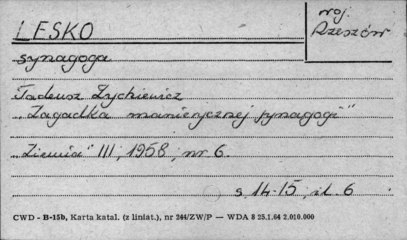 LESKO
woj.
Rzeszów
synagoga
Tadeusz Żychiewicz
"Zagadka manierycznej synagogi"
"Ziemia" III, 1958, nr 6.
s. 14-15, il. 6
CWD - B-15b, Karta katal. (z liniat.), nr 244/ZW/P — WDA 8 25.1.64 2.010.000